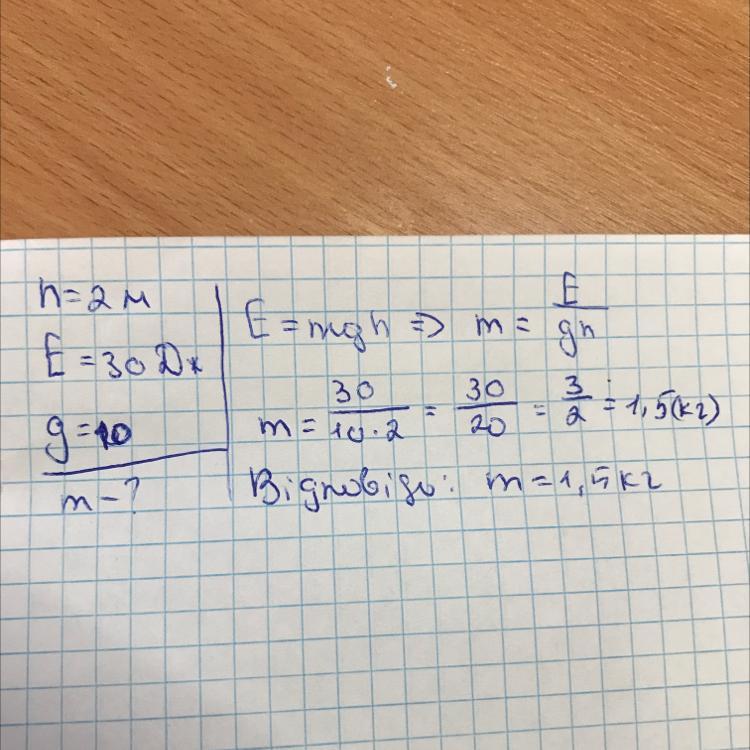 h=2м
E=30Дж
g=10
m-?
E=mgh => m = E/gh
m = 30/10·2 = 30/20 = 3/2 = 1,5(кг)
Відповідь: m=1,5кг